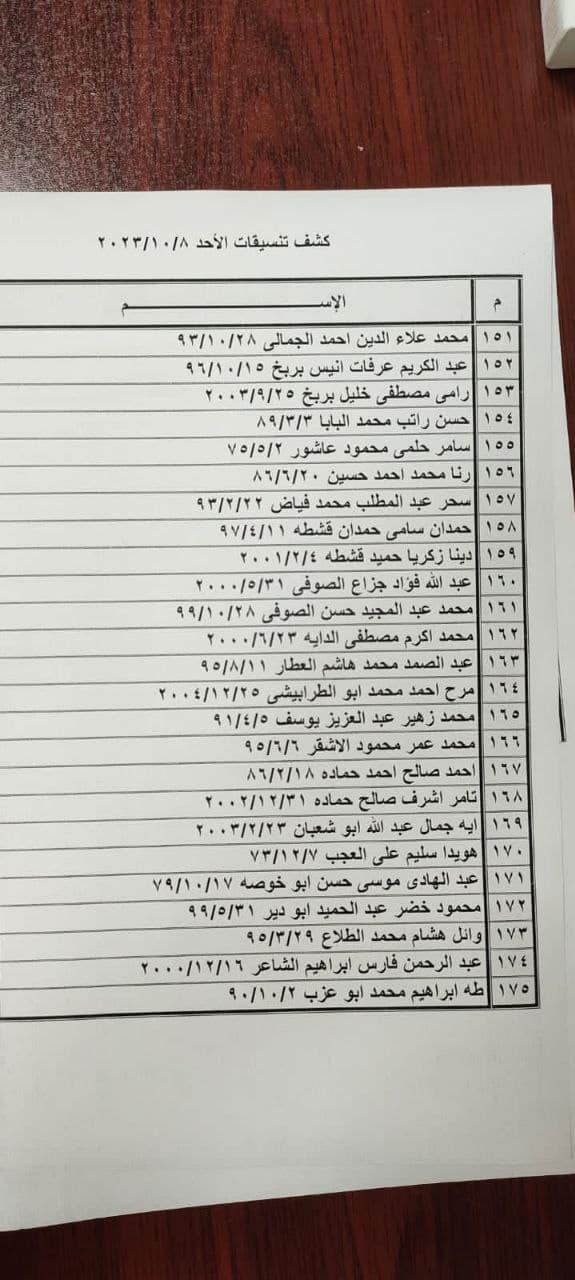 كشف تنسيقات الأحد ٢٠٢٣/١٠/٨
م الإســـــم
١٥١ محمد علاء الدين احمد الجمالى ٩٣/١٠/٢٨
١٥٢ عبد الكريم عرفات انيس بربخ ٩٦/١٠/١٥
١٥٣ رامى مصطفى خليل بربخ ٢٠٠٣/٩/٢٥
١٥٤ حسن راتب محمد البابا ٨٩/٣/٣
١٥٥ سامر حلمى محمود عاشور ٧٥/٥/٢
١٥٦ رنا محمد احمد حسين ٨٦/٦/٢٠
١٥٧ سحر عبد المطلب محمد فياض ٩٣/٢/٢٢
١٥٨ حمدان سامى حمدان قشطه ٩٧/٤/١١
١٥٩ دينا زكريا حميد قشطه ٢٠٠١/٢/٤
١٦٠ عبد الله فؤاد جزاع الصوفى ٢٠٠٠/٥/٣١
١٦١ محمد عبد المجيد حسن الصوفى ٩٩/١٠/٢٨
١٦٢ محمد اكرم مصطفى الدايه ٢٠٠٠/٦/٢٣
١٦٣ عبد الصمد محمد هاشم العطار ٩٥/٨/١١
١٦٤ مرح احمد محمد ابو الطرابيشى ٢٠٠٤/١٢/٢٥
١٦٥ محمد زهير عبد العزيز يوسف ٩١/٤/٥
١٦٦ محمد عمر محمود الاشقر ٩٥/٦/٦
١٦٧ احمد صالح احمد حماده ٨٦/٢/١٨
١٦٨ تامر اشرف صالح حماده ٢٠٠٢/١٢/٣١
١٦٩ ايه جمال عبد الله ابو شعبان ٢٠٠٣/٢/٢٣
١٧٠ هويدا سليم على العجب ٧٣/١٢/٧
١٧١ عبد الهادى موسى حسن ابو خوصه ٧٩/١٠/١٧
١٧٢ محمود خضر عبد الحميد ابو دير ٩٩/٥/٣١
١٧٣ وائل هشام محمد الطلاع ٩٥/٣/٢٩
١٧٤ عبد الرحمن فارس ابراهيم الشاعر ٢٠٠٠/١٢/١٦
١٧٥ طه ابراهيم محمد ابو عزب ٩٠/١٠/٢